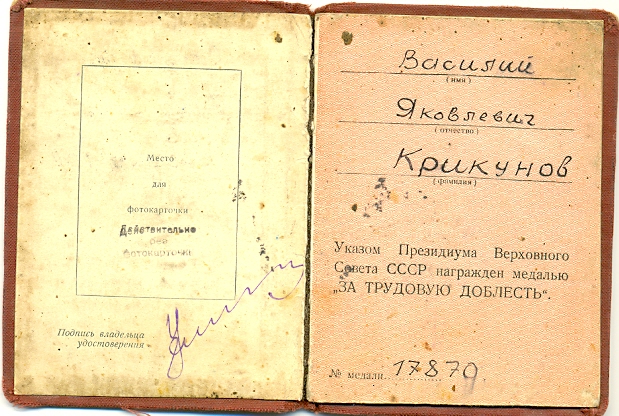 Место
для
фотокарточки
Действительно
без
фотокарточки
Подпись владельца
удостоверения
Василий
(имя)
Яковлевич
(отчество)
Крикунов
(фамилия)
Указом Президиума Верховного
Совета СССР награжден медалью
„ЗА ТРУДОВУЮ ДОБЛЕСТЬ“.
№ медали 17879